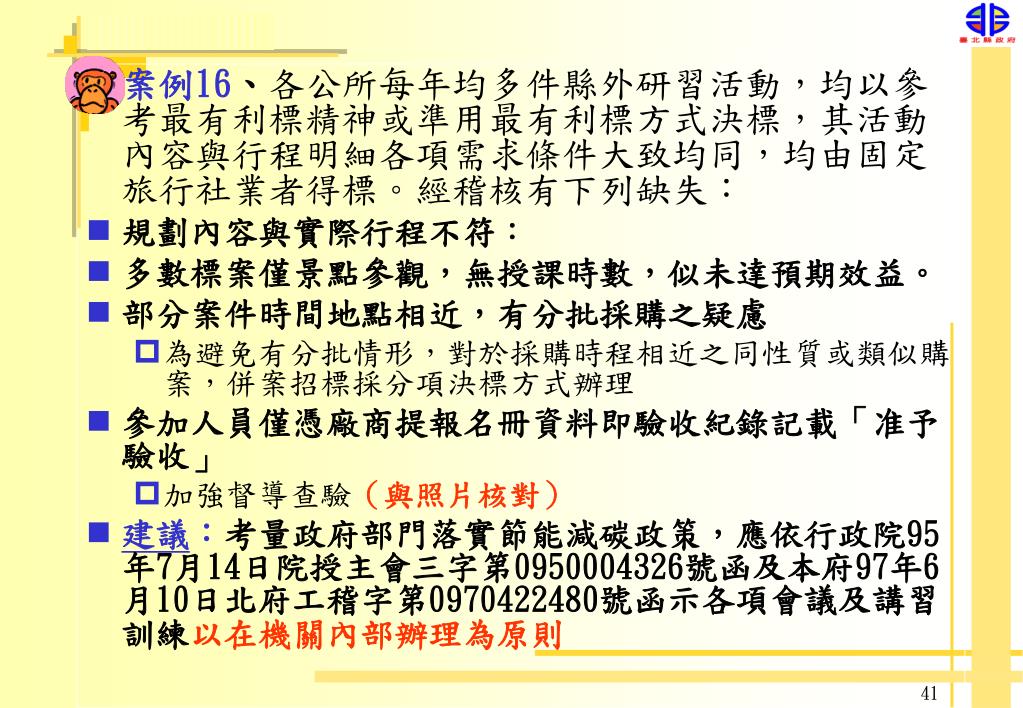 臺北縣政府
案例16、各公所每年均多件縣外研習活動，均以參
考最有利標精神或準用最有利標方式決標，其活動
內容與行程明細各項需求條件大致均同，均由固定
旅行社業者得標。經稽核有下列缺失：
規劃內容與實際行程不符：
多數標案僅景點參觀，無授課時數，似未達預期效益。
部分案件時間地點相近，有分批採購之疑慮
為避免有分批情形，對於採購時程相近之同性質或類似購
案，併案招標採分項決標方式辦理
參加人員僅憑廠商提報名冊資料即驗收紀錄記載「准予
驗收」
加強督導查驗（與照片核對）
建議：考量政府部門落實節能減碳政策，應依行政院95
年7月14日院授主會三字第0950004326號函及本府97年6
月10日北府工稽字第0970422480號函示各項會議及講習
訓練以在機關內部辦理為原則
41